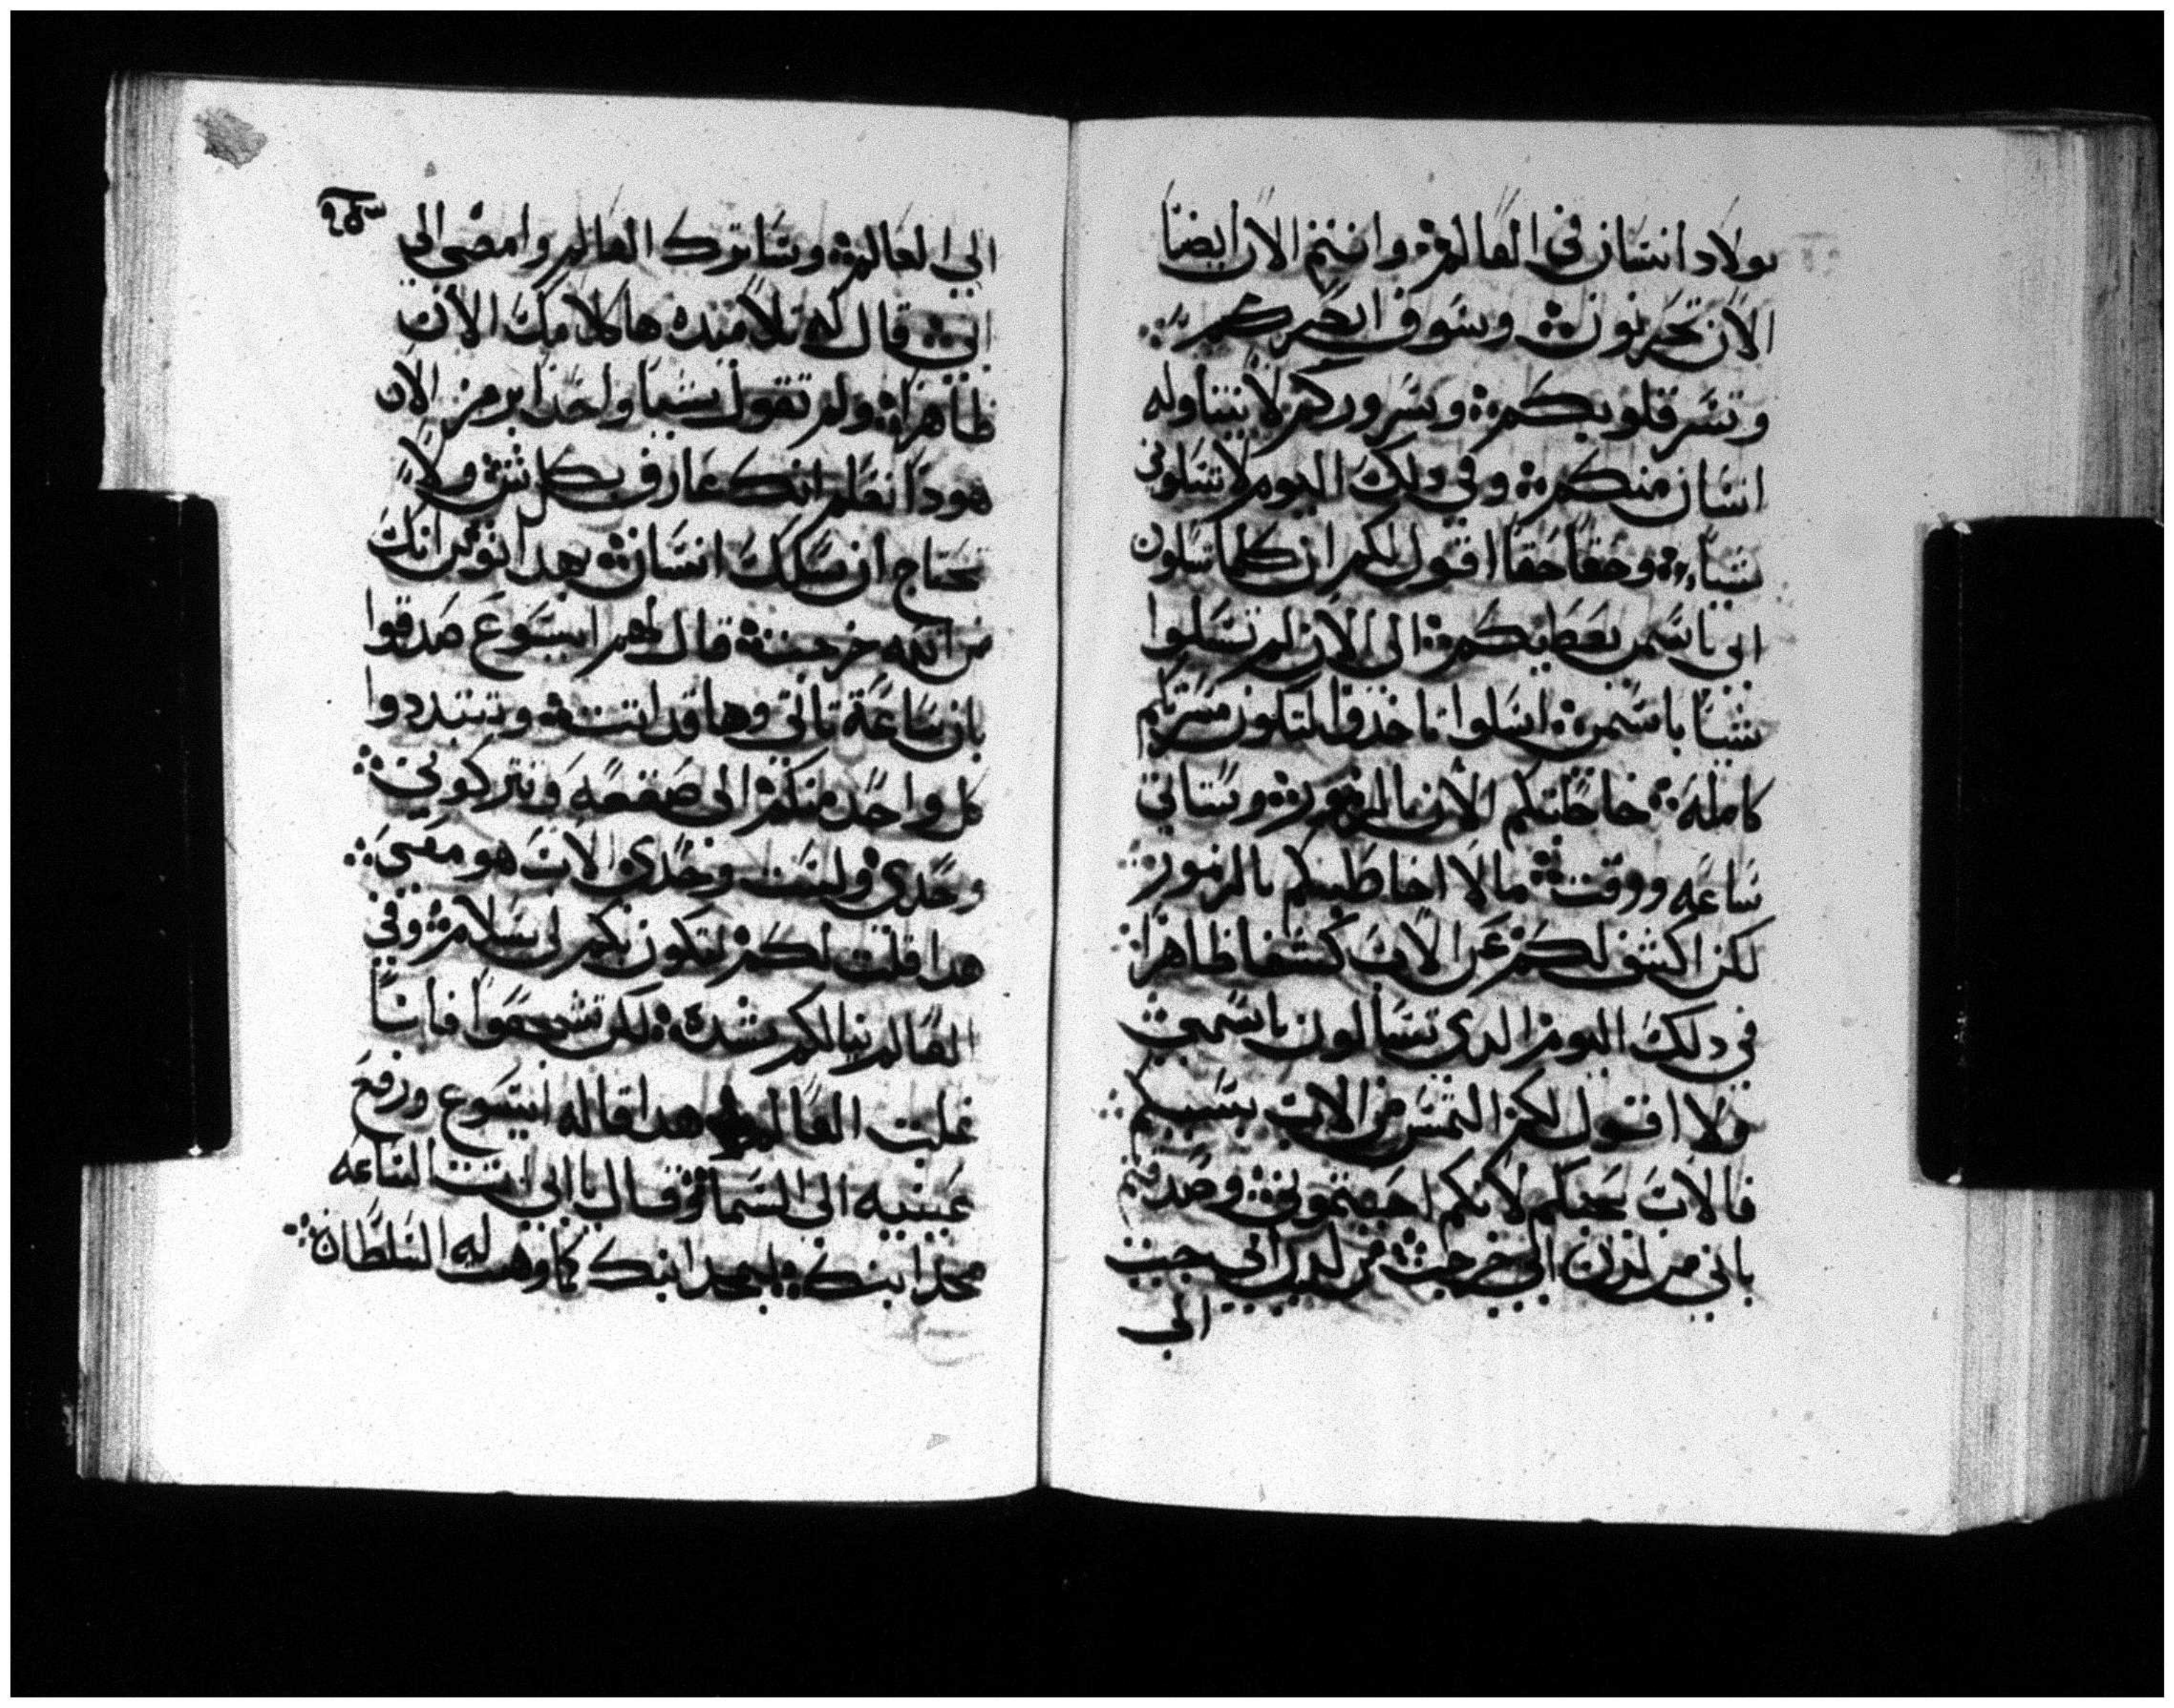 بولاد انسان في العالم ۞ وانتم الان ايضا
الان تحزنون ۞ وسوف ابصركم ۞
وتسر قلوبكم ۞ وسروركم لا يتناوله
انسان منكم ۞ وفي دلك اليوم لا تسلوني
شيا ۞ وحقا حقا اقول لكم ان كلما تسلون
ابي باسمي يعطيكم ۞ الى الان لم تسلوا
شيا باسمي ۞ اسلوا تاخدوا لتكون مسرتكم
كامله ۞ خاطبتكم الان بالرموز ۞ وستاتي
ساعه ووقت ۞ ما لا اخاطبكم بالرموز
لكن اكشف لكم عن الاب كشفا ظاهرا ۞
في دلك اليوم الدي تسالون باسمي ۞
ولا اقول لكم التمس من الاب بسببكم ۞
فالاب يحبكم لانكم احببتموني ۞ وصدقتم
باني من لدن ابي خرجت ۞ من لدن ابي جيت
الى
الى العالم ۞ وساترك العالم وامضي الى
ابي ۞ قال له تلاميده ها كلامك الان
ظاهرا ۞ ولم تقول شيا واحدا برمز الان
هودا نعلم انك عارف بكل شي ۞ ولا
تحتاج ان يسلك انسان ۞ بهدا نومن انك
من الله خرجت ۞ قال لهم ايسوع صدقوا
بان ساعة تاتي وها قد اتت ۞ وتتبددوا
كل واحد منكم الى صقعه وتتركوني ۞
وحدي ۞ وليت وحدي الاب هو معي ۞
هدا قلت لكم لتكون بكم لي سلام ۞ وفي
العالم ينالكم شده ۞ لكن تشجعوا فانا
غلبت العالم ۞ هدا قاله ايسوع ورفع
عينيه الى السما ۞ وقال يا ابي اتت الساعه
مجد ابنك ۞ ليمجد ابنك كما وهبت له السلطان ۞